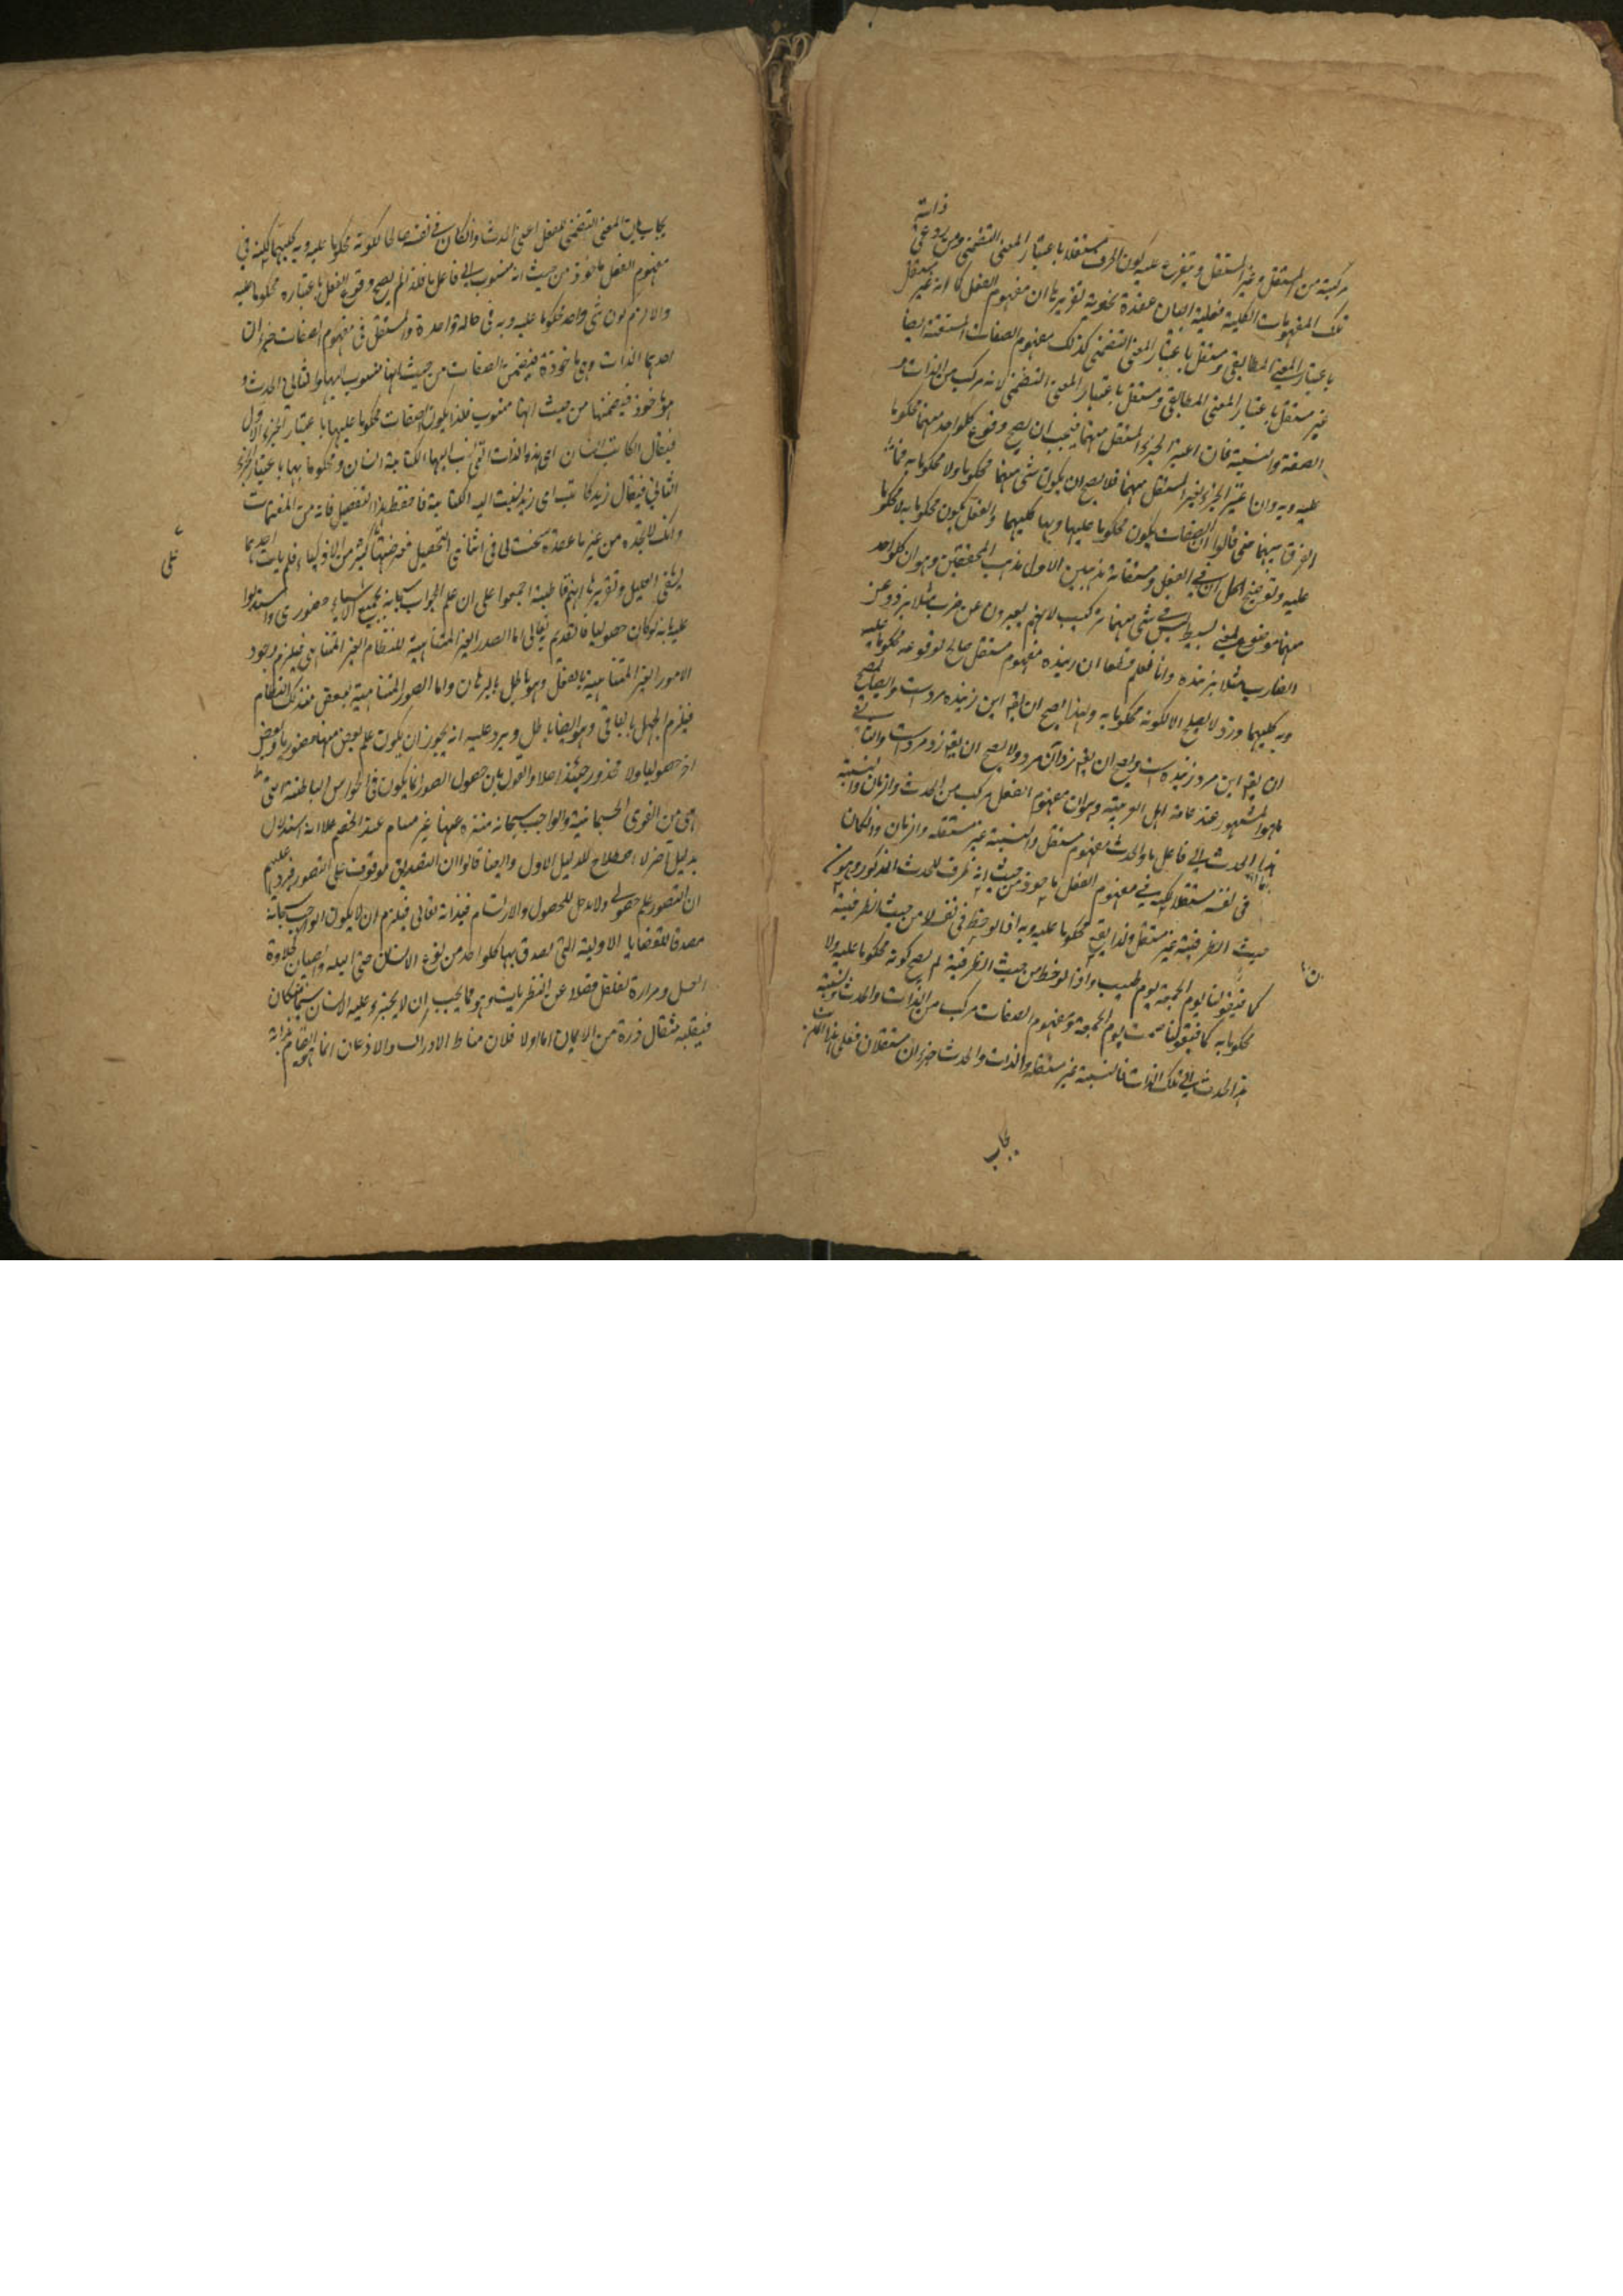 مركبة من المستقل وغير المستقل ويتفرع عليه كون الحرف مستقلا باعتبار المعنى التضمنى ومن يدعى
تلك المفهومات الكلية فعليه البيان عقدة نحوية تقريرها ان مفهوم الفعل كما انه غير مستقل
باعتبار المعنى المطابقى ومستقل باعتبار المعنى التضمنى كذلك مفهوم الصفات المشتقة ايضا
غير مستقل باعتبار المعنى المطابقى ومستقل باعتبار المعنى التضمنى لانه مركب من الذات و
الصفة والنسبة فان اعتبر الجزء المستقل منهما فيجب ان يصح وقوع كلواحد منهما محكوما
عليه وبه وان اعتبر الجزء الغير المستقل منهما فلا يصح ان يكون شئ منهما محكوما ولا محكوما به فما
الفرق بينهما حتى قالوا ان الصفات يكون محكوما عليها وبها كليهما والفعل يكون محكوما به لا محكوما
عليه وتوضيح الحل ان فى الفعل ومشتقاته مذهبين الاول مذهب المحققين وهو ان كلواحد
منهما موضوع لمعنى بسيط ليس فى شئ منهما تركيب لانهم يعبرون عن ضرب مثلا بزد وعن
الضارب مثلا بزننده وانا نعلم قطعا ان زننده مفهوم مستقل صالح لوقوعه محكوما عليه
وبه كليهما وزد لا يصلح الا لكونه محكوما به ولهذا يصح ان يق اين زننده مردست وايضا يصح
ان يق اين مرد زننده است ويصح ان يق زد آن مرد ولا يصح ان يق زد مردست والثانى
ما هو المشهور عند عامة اهل العربية وهو ان مفهوم الفعل مركب من الحدث والزمان والنسبة
هذا الحدث الى فاعل ما والحدث مفهوم مستقل والنسبة غير مستقلة والزمان وان كان
فى نفسه مستقلا لكنه فى مفهوم الفعل ماخوذ من حيث انه ظرف للحدث المذكور وهو من
حيث الظرفية غير مستقل ولذا يق محكوما عليه وبه اذا لوحظ فى نفسه لا من حيث الظرفية
كما فيقولنا يوم الجمعة يوم طيب واذا لوحظ من حيث الظرفية لم يصح كونه محكوما عليه ولا
محكوما به كما فيقولنا صمت يوم الجمعة ومفهوم الصفات مركب من الذات والحدث ونسبة
هذا الحدث الى تلك الذات فالنسبة غير مستقلة والذات والحدث جزءان مستقلان فعلى هذا
يجاب
يجاب بان المعنى التضمنى للفعل اعنى الحدث وان كان فى نفسه صالحا لكونه محكوما عليه وبه كليهما لكنه فى
مفهوم الفعل ماخوذ من حيث انه منسوب الى فاعل ما فلذا لم يصح وقوع الفعل باعتباره محكوما عليه
والا لزم كون شئ واحد محكوما عليه وبه فى حالة واحدة والمستقل فى مفهوم الصفات جزءان
احدهما الذات وهى ماخوذة فيضمن الصفات من حيث انها منسوب اليها والثانى الحدث و
هو ماخوذ فيضمنها من حيث انها منسوب فلذا يكون الصفات محكوما عليها باعتبار الجزء الاول
فيقال الكاتب انسان اى هذه الذات التى نسب اليها الكتابة انسان ومحكوما بها باعتبار الجزء
الثانى فيقال زيد كاتب اى زيد نسبت اليه الكتابة فاحفظ هذا التفصيل فانه من المغتنمات
وانك لا تجده من غيرنا عقدة سخت لى فى اثناء التحصيل فعرضتها كثير من الاذكياء فلم يات احد بما
يشفى العليل وتقريرها انهم قاطبة اجمعوا على ان علم الواجب سبحانه بجميع الاشياء حضورى واستدلوا
عليه بانه لو كان حصوليا فالقديم تعالى اما الصور الغير المتناهية للنظام الغير المتناهى فيلزم وجود
الامور الغير المتناهية بالفعل وهو باطل بالبرهان واما الصور المتناهية لبعض من ذلك النظام
فيلزم الجهل بالباقى وهو ايضا باطل ويرد عليه انه يجوز ان يكون علم بعض منها حضوريا وبعض
اخر حصوليا ولا محذور حينئذ اصلا والقول بان حصول الصور انما يكون فى الحواس الباطنة التى
هى من القوى الجسمانية والواجب سبحانه منزه عنها غير مسلم عند الخصم علا انه استدلال
بدليل آخر لا اصطلاح للدليل الاول وايضا قالوا ان التصديق موقوف على التصور فيرد عليهم
ان التصور علم حصولى ولا دخل للحصول والارتسام فيذاته تعالى فيلزم ان لا يكون الواجب سبحانه
مصدقا للقضايا الاولية التى يصدق بها كلواحد من نوع الانسان حتى البله والصبيان كحلاوة
العسل ومرارة الفلفل فضلا عن النظريات وهو مما يجب ان لا يجترء عليه الانسان سيما من كان
فيقلبه مثقال ذرة من الايمان اما اولا فلان مناط الادراك والاذعان انما هو
على